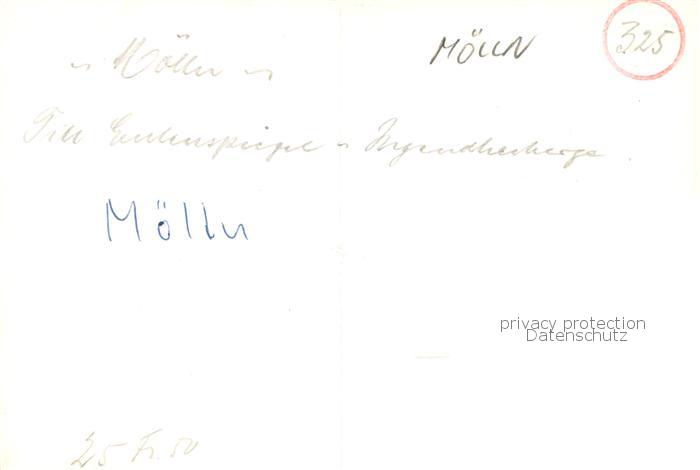 MÖLLN
325
" Mölln "
Till Eulenspiegel - Jugendherberge.
Mölln
privacy protection
Datenschutz
25 Fr. 50